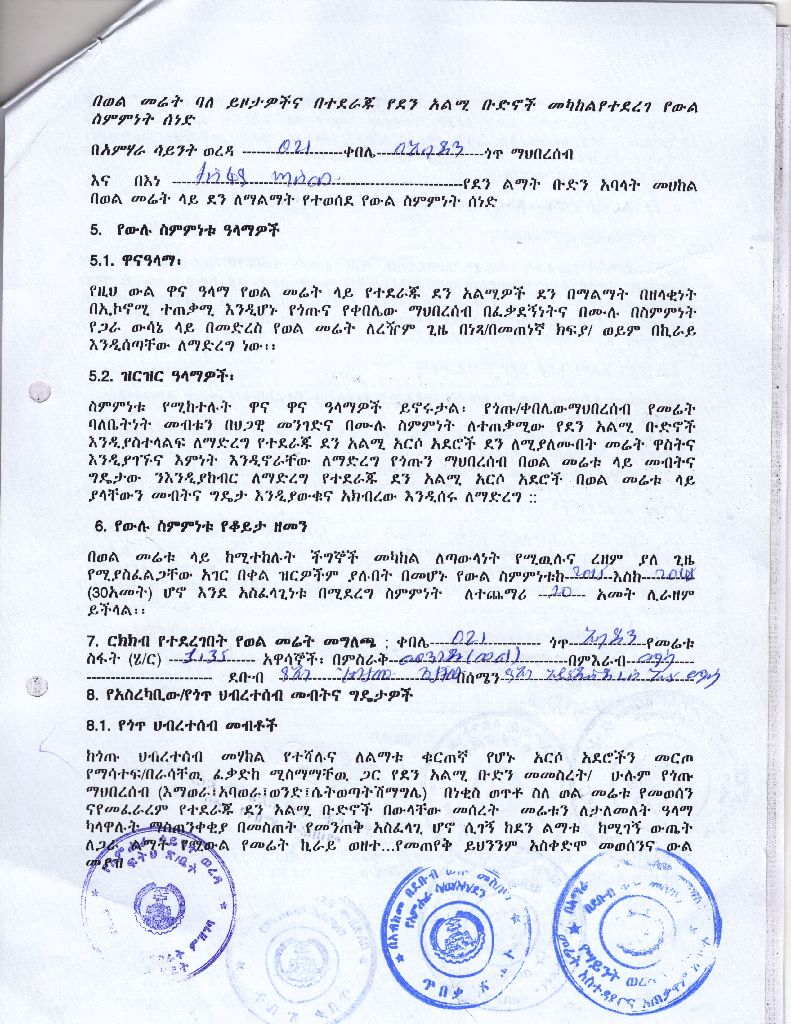 በወል መሬት ባለ ይዞታዎችና በተደራጁ የደን አልሚ ቡድኖች መካከልየተደረገ የውል
ስምምነት ሰነድ
በአምሃራ ሳይንት ወረዳ ------------021------------ቀበሌ------------ጎጥ ማህበረሰብ
እና በእነ ------------የደን ልማት ቡድን አባላት መሀከል
በወል መሬት ላይ ደን ለማልማት የተወሰደ የውል ስምምነት ሰነድ
5. የውሉ ስምምነቱ ዓላማዎች
5.1. ዋናዓላማ፡
የዚህ ውል ዋና ዓላማ የወል መሬት ላይ የተደራጁ ደን አልሚዎች ደን በማልማት በዘላቂነት
በኢኮኖሚ ተጠቃሚ እንዲሆኑ የጎጡና የቀበሌው ማህበረሰብ በፈቃደኝነትና በሙሉ በስምምነት
የጋራ ውሳኔ ላይ በመድረስ የወል መሬት ለረዥም ጊዜ በነጻ/በመጠነኛ ክፍያ/ ወይም በኪራይ
እንዲሰጣቸው ለማድረግ ነው፡፡
5.2. ዝርዝር ዓላማዎች፡
ስምምነቱ የሚከተሉት ዋና ዋና ዓላማዎች ይኖሩታል፡ የጎጡ/ቀበሌውማህበረሰብ የመሬት
ባለቤትነት መብቱን በህጋዊ መንገድና በሙሉ ስምምነት ለተጠቃሚው የደን አልሚ ቡድኖች
እንዲያስተላልፍ ለማድረግ የተደራጁ ደን አልሚ አርሶ አደሮች ደን ለሚያለሙበት መሬት ዋስትና
እንዲያገኙና እምነት እንዲኖራቸው ለማድረግ የጎጡን ማህበረሰብ በወል መሬቱ ላይ መብትና
ግዴታው ንእንዲያከብር ለማድረግ የተደራጁ ደን አልሚ አርሶ አደሮች በወል መሬቱ ላይ
ያላቸውን መብትና ግዴታ እንዲያውቁና አክብረው እንዲሰሩ ለማድረግ ::
6. የውሉ ስምምነቱ የቆይታ ዘመን
በወል መሬቱ ላይ ከሚተከሉት ችግኞች መካከል ለጣውላነት የሚዉሉና ረዘም ያለ ጊዜ
የሚያስፈልጋቸው አገር በቀል ዝርዎችም ያሉበት በመሆኑ የውል ስምምነቱከ------እስከ------
(30አመት) ሆኖ እንደ አስፈላጊነቱ በሚደረግ ስምምነት ለተጨማሪ ---20--- አመት ሊራዘም
ይችላል፡፡
7. ርክክብ የተደረገበት የወል መሬት መግለጫ ; ቀበሌ------021------------ ጎጥ ------የመሬቱ
ስፋት (ሄ/ር) ---1.35------ አዋሳኞች፡ በምስራቅ------------በምእራብ------
------------------ ደቡብ ------------በሰሜን------------
8. የአስረካቢው/የጎጥ ህብረተሰብ መብትና ግዴታዎች
8.1. የጎጥ ህብረተሰብ መብቶች
ከጎጡ ህብረተሰብ መሃከል የተሻሉና ለልማቱ ቁርጠኛ የሆኑ አርሶ አደሮችን መርጦ
የማሳተፍ/በራሳቸዉ ፈቃድከ ሚስማማቸዉ ጋር የደን አልሚ ቡድን መመስረት/ ሁሉም የጎጡ
ማህበረሰብ (እማወራ፣አባወራ፣ወንድ፣ሴትወጣትሽማግሌ) በነቂስ ወጥቶ ስለ ወል መሬቱ የመወሰን
ናየመፈራረም የተደራጁ ደን አልሚ ቡድኖች በውላቸው መሰረት መሬቱን ለታለመለት ዓላማ
ካላዋሉት ማስጠንቀቂያ በመስጠት የመንጠቅ አስፈላጊ ሆኖ ሲገኝ ከደን ልማቱ ከሚገኝ ውጤት
ለጋራ ልማት የሚውል የመሬት ኪራይ ወዘተ...የመጠየቅ ይህንንም አስቀድሞ መወሰንና ውል
ጥበቃ